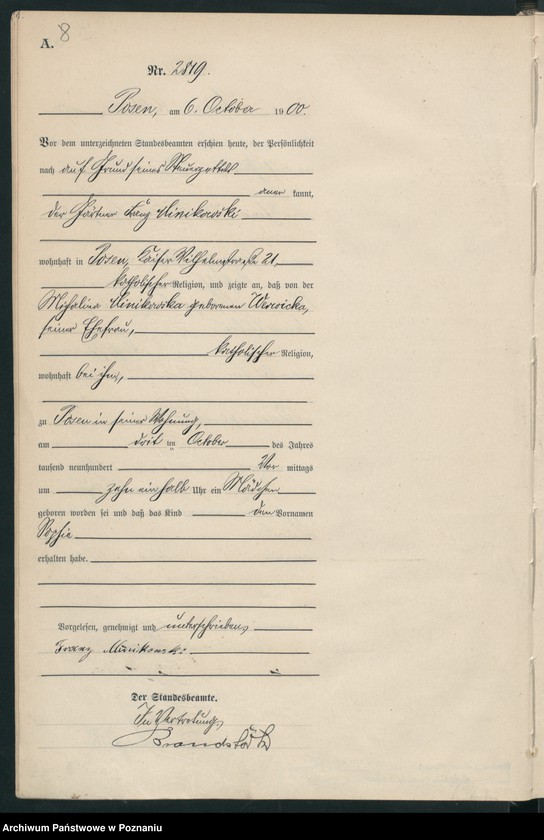 A. 8
Nr. 2819.
Posen, am 6. October 1900.
Vor dem unterzeichneten Standesbeamten erschien heute, der Persönlichkeit
nach auf Grund seines Steuerzettels
aner kannt,
der Gärtner Franz Minikowski
wohnhaft in Posen, Kaiser Wilhelmstraße 21,
katholischer Religion, und zeigte an, daß von der
Michalina Minikowska geborenen
seiner Ehefrau,
katholischer Religion,
wohnhaft bei ihm,
zu Posen in seiner Wohnung,
am dritten October des Jahres
tausend neunhundert Vor mittags
um zehn ein halb Uhr ein Mädchen
geboren worden sei und daß das Kind den Vornamen
Sophie
erhalten habe.
Vorgelesen, genehmigt und unterschrieben,
Franz Minikowski
Der Standesbeamte.
In Vertretung,
Archiwum Państwowe w Poznaniu